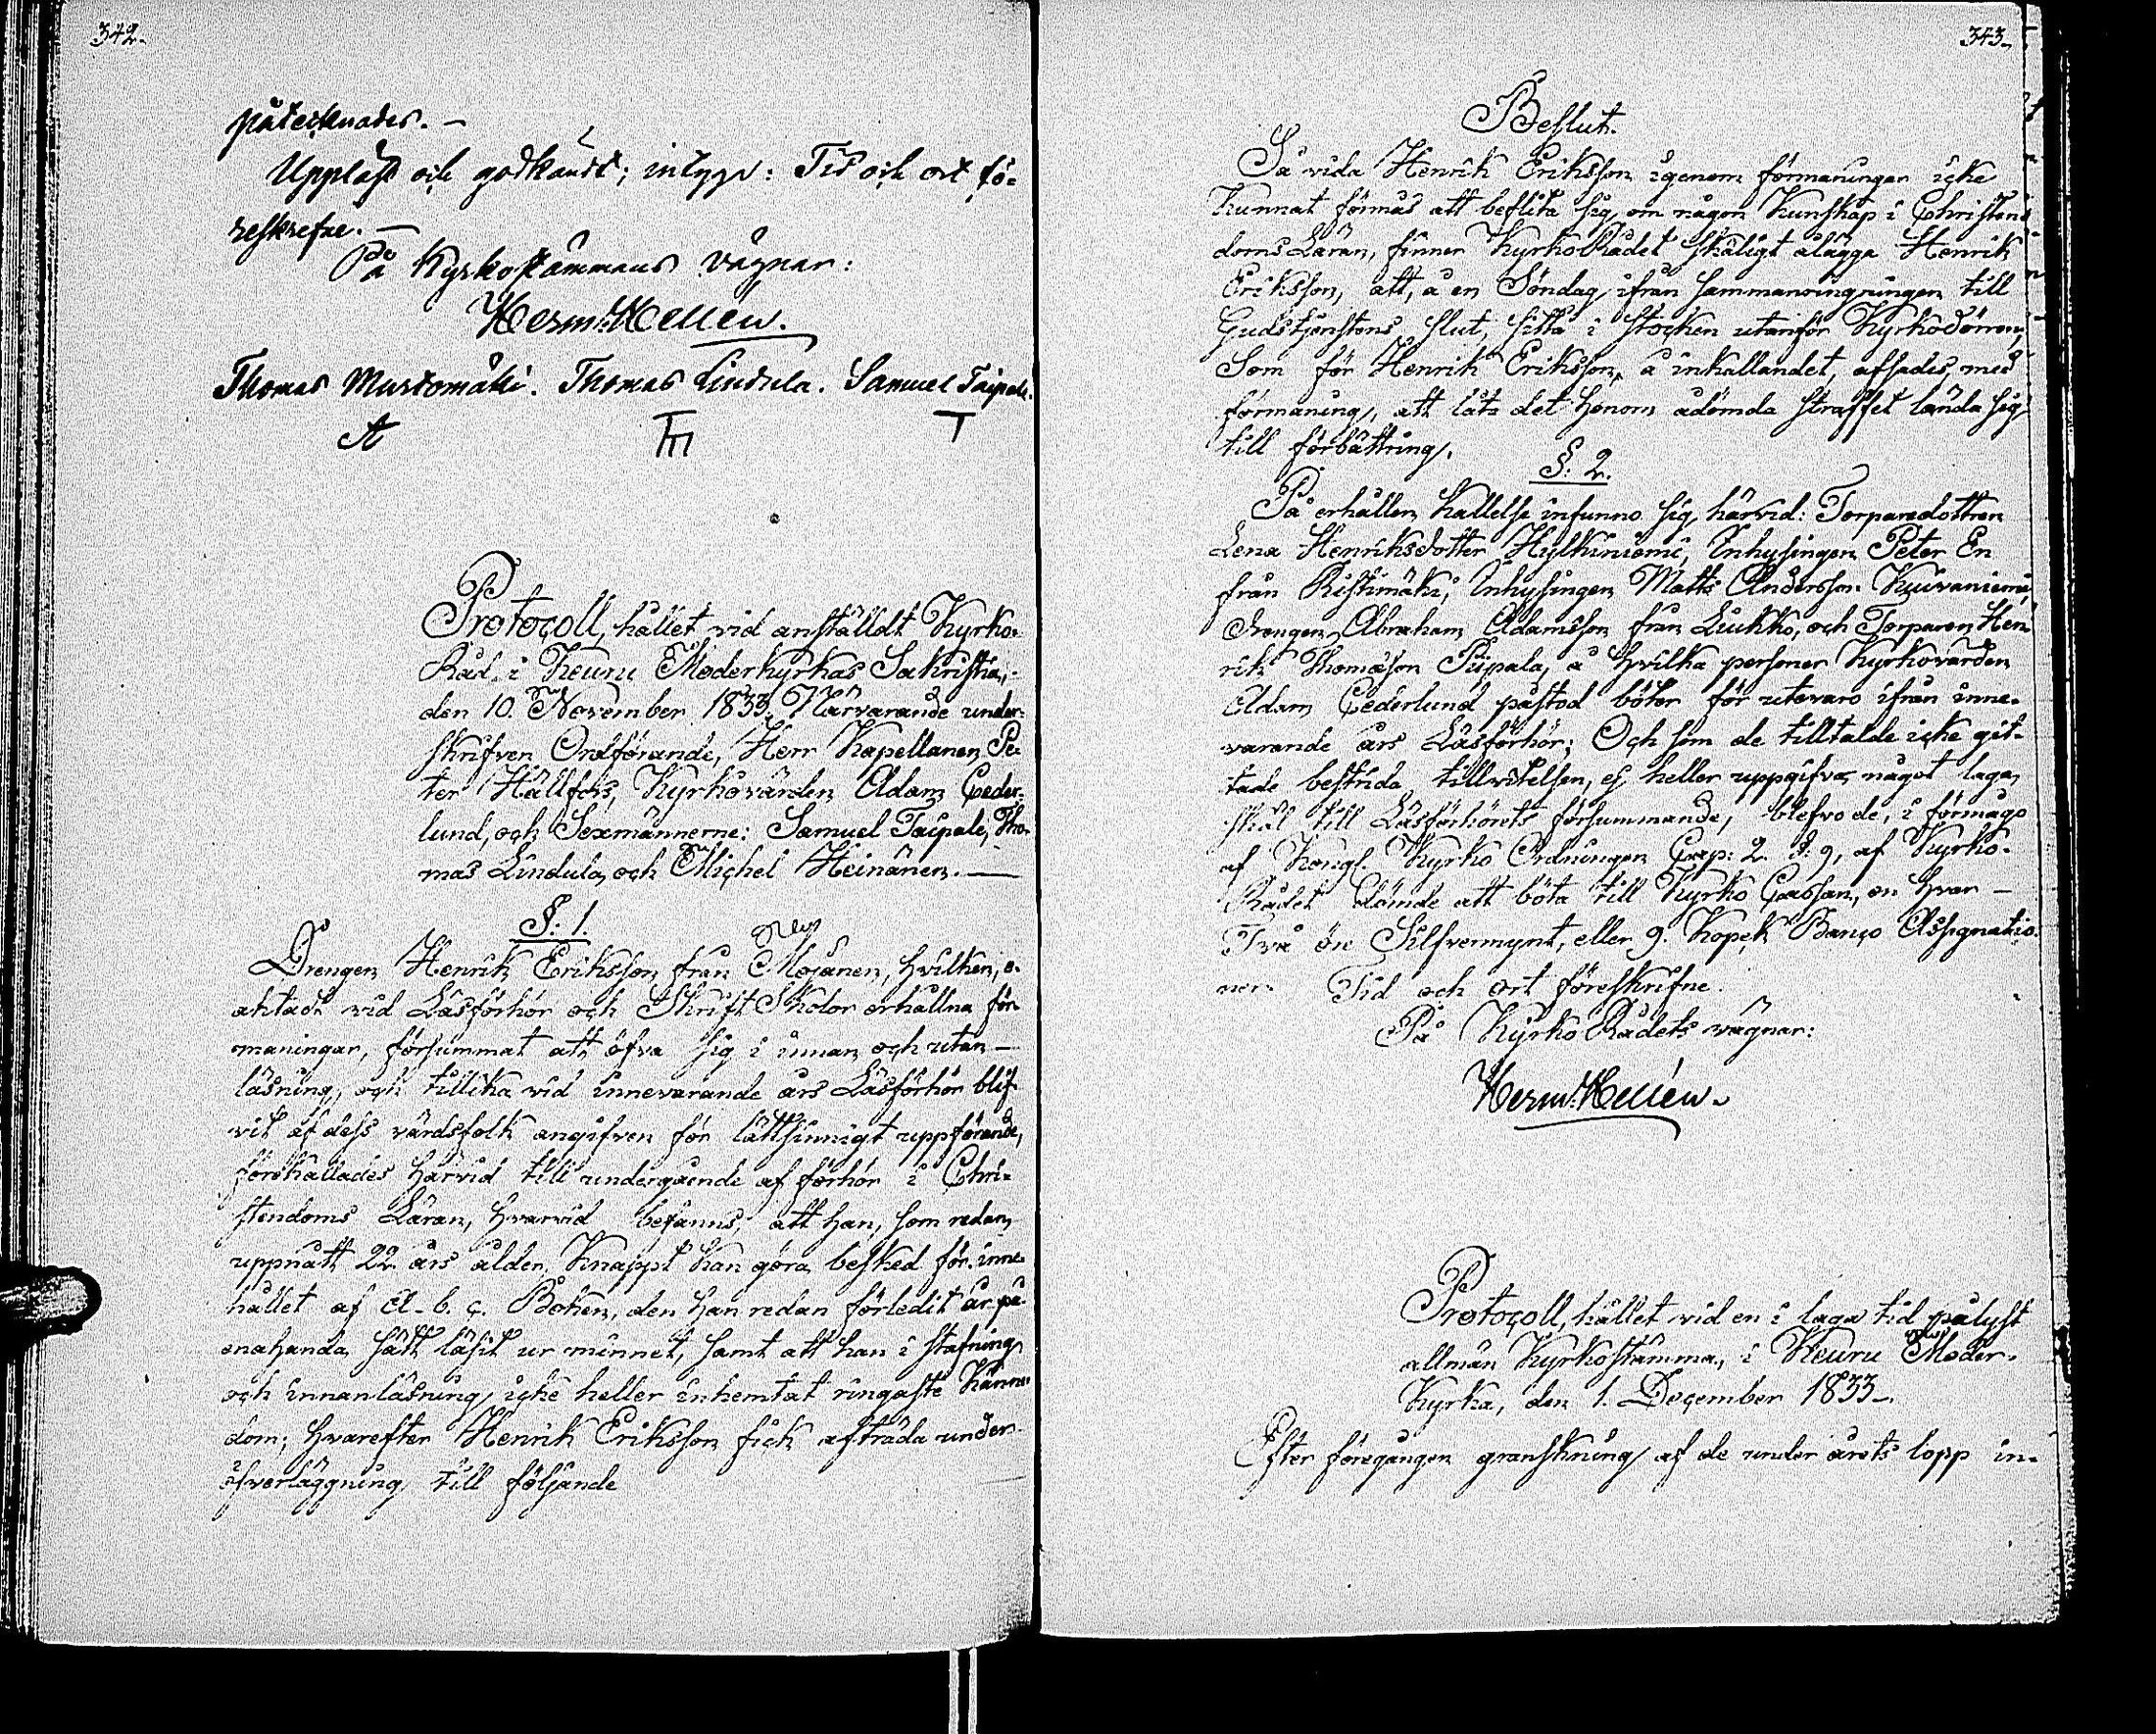 342.
påtecknades. —
Uppläst och godkändt; intyga: Tid och ort fö-
reskrefne. —
På Kyrkostämmans vägnar:
Herm: Hellén.
Thomas Murtomäki. Thomas Lindula. Samuel Taipale.
Protocoll, hållet vid anstäldt Kyrko-
Råd, i Keuru Moderkyrkas Sakristia,
den 10. November 1833. Närvarande under-
skrifven Ordförande, Herr Kapellanen Pe-
ter Hällfors, Kyrkovärden Adam Ceder-
lund, och Sexmännerne: Samuel Taipale, Tho-
mas Lindula, och Michel Heinänen. —
§: 1.
Drengen Henrik Eriksson från Mojanen, hvilken, o-
aktadt vid Läsförhör och Skrift Skolor erhållna för-
maningar, försummat att öfva sig i innan och utan-
läsning, och tillika vid innevarande års Läsförhör blif-
vit af dess värdsfolk angifven för lättsinnigt uppförande,
förehållades härvid till undergående af förhör i Chri-
stendoms Läran, hvarvid befanns, att han, som redan
uppnått 22 års ålder, knappt kan göra besked för inne-
hållet af A-b.c. Boken, den han redan förledit år på
enahanda sätt läsit ur minnet, samt att han i stafning
och innanläsning icke heller inhemtat ringaste känne-
dom; hvarefter Henrik Eriksson fick afträda under
öfverläggning till följande
343.
Beslut.
Så vida Henrik Eriksson igenom förmaningar icke
kunnat förmås att beflita sig om någon Kunskap i Christen-
doms Läran, finner KyrkoRådet skäligt ålägga Henrik
Eriksson, att, å en Söndag ifrån sammanringningen till
Gudstjenstens slut, sitta i stocken utanför Kyrkodörren,
Som för Henrik Eriksson, å inkallandet, afsades med
förmaning, att låta det honom ådömda straffet lända sig
till förbättring.
§: 2.
På erhållen kallelse infunno sig härvid: Torparedottren
Lena Henriksdotter Hylkiniemi, Inhysingen Peter En
från Ristimäki, Inhysingen Matts Andersson Kuivaniemi,
Drengen Abraham Adamsson från Luikko, och Torparen Hen-
rik Thomasson Piipala, å hvilka personer Kyrkovärden
Adam Cederlund påstod böter för utevaro ifrån inne-
varande års Läsförhör; Och som de tilltalde icke git-
tade bestrida tillvitelsen, ej heller uppgifva något laga
skäl till Läsförhörets försummande, blefvo de, i förmågo
af Kongl. Kyrko Ordningen Cap: 2. §: 9, af Kyrko-
Rådet dömde att böta till Kyrko Cassan, en hvar —
Två öre Silfvermynt, eller 9. Kopek Banco Assignatio-
ner. Tid och ort föreskrifne.
På Kyrko Rådets vägnar:
Herm: Hellén.
Protocoll, hållet vid en i laga tid pålyst
allmän Kyrkostämma, i Keuru Moder-
Kyrka, den 1. December 1833.
Efter föregången granskning af de under årets lopp in-